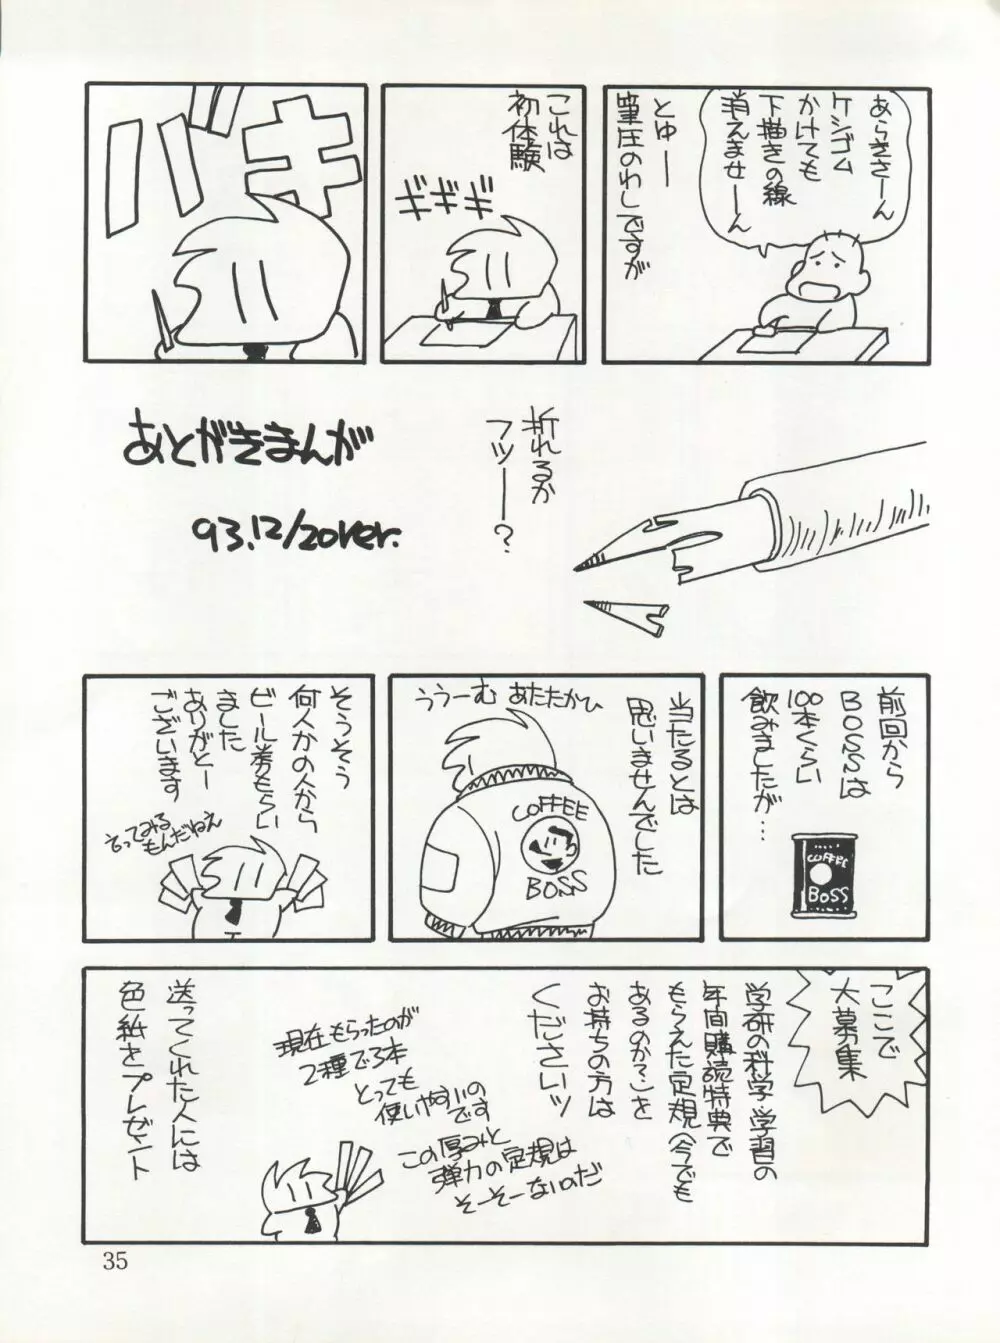 あらきさーん
ケシゴム
かけても
下描きの線
消えませーん
とゆー
筆圧のわしですが
これは
初体験
ギギギ
バキ
折れるか
フツー？
あとがきまんが
93.12/20ver.
前回から
BOSSは
100本くらい
飲みましたが…
COFFEE
BOSS
当たるとは
思いませんでした
ううーむ あたたかひ
COFFEE
BOSS
そうそう
何人かの人から
ビール券もらい
ました
ありがとー
ございます
言ってみる
もんだねえ
ここで
大募集
学研の科学 学習の
年間購読特典で
もらえた定規（今でも
あるのか？）を
お持ちの方は
くださいッ
現在もらったのが
2種で3本
とっても
使いやすいの
です
この厚みと
弾力の定規は
そーそーないのだ
送ってくれた人には
色紙をプレゼント
35